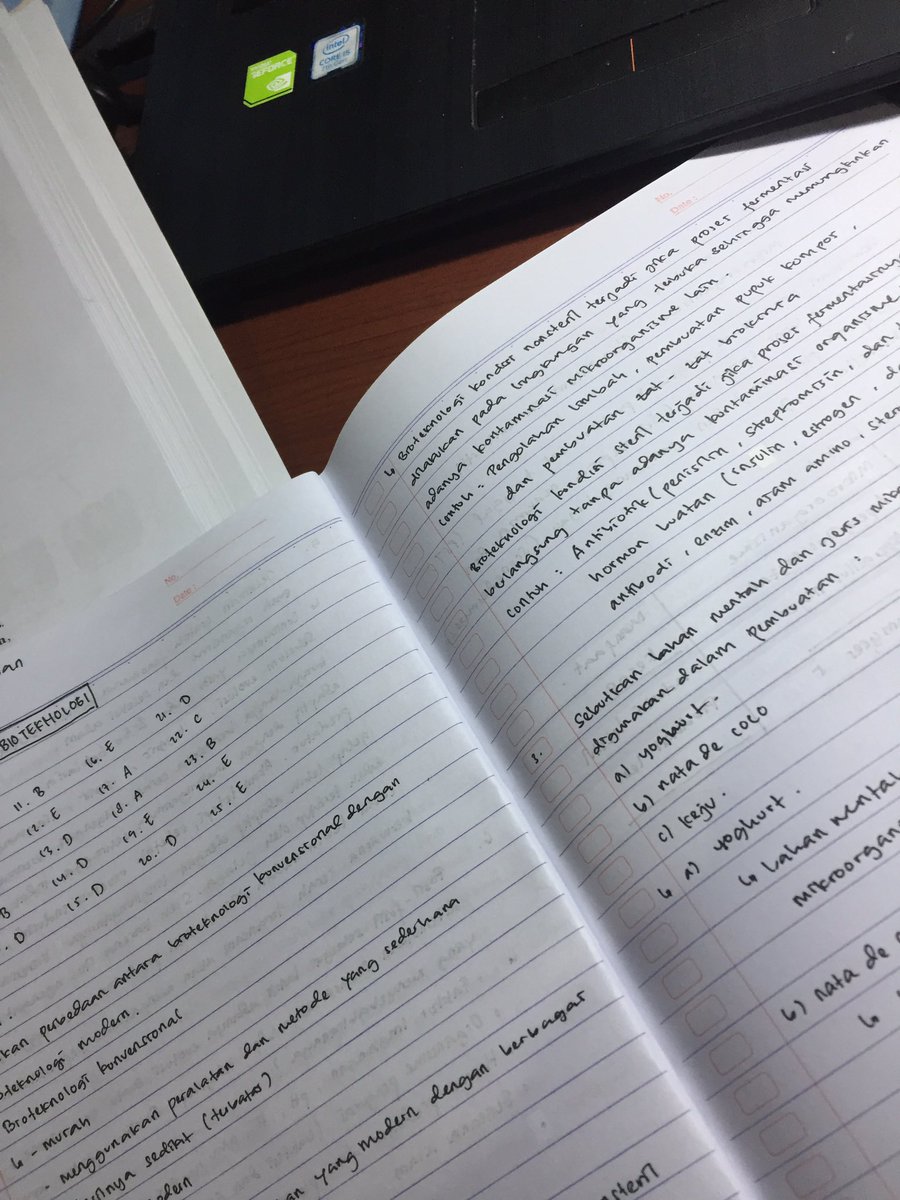 GEFORCE
intel
CORE i5
No.
Date :
BIOTEKNOLOGI
11. B 16. E 21. D
12. E 17. A 22. C
13. D 18. A 23. B
B 14. D 19. E 24. E
D 15. D 20. D 25. E
kan perbedaan antara bioteknologi konvensional dengan
oteknologi modern.
Bioteknologi konvensional
↳ - murah
- menggunakan peralatan dan metode yang sederhana
sedikit (terbatas)
yang modern dengan berbagai
No.
Date :
↳ Bioteknologi kondisi nonsteril terjadi jika proses fermentasi
dilakukan pada lingkungan yang terbuka sehingga memungkinkan
adanya kontaminasi mikroorganisme lain.
contoh : Pengolahan limbah, pembuatan pupuk kompos,
dan pembuatan zat-zat biokimia
Bioteknologi kondisi steril terjadi jika proses fermentasinya
berlangsung tanpa adanya kontaminasi organisme
contoh : Antibiotik (penisilin, streptomisin, dan
hormon buatan (insulin, estrogen,
antibodi, enzim, asam amino,
3. Sebutkan bahan mentah dan jenis
digunakan dalam pembuatan :
a) yoghurt.
b) nata de coco
c) keju.
↳ a) yoghurt.
↳ bahan
b) nata de
↳